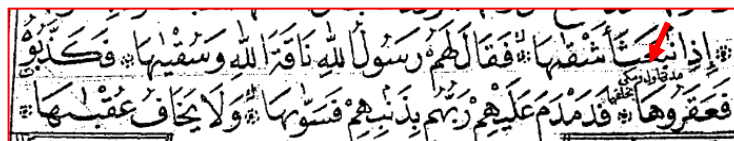 إِذِ انْبَعَثَ أَشْقٰىهَا ۞ فَقَالَ لَهُمْ رَسُولُ اللّٰهِ نَاقَةَ اللّٰهِ وَسُقْيٰهَا ۞ فَكَذَّبُوهُ
فَعَقَرُوهَا ۞ فَدَمْدَمَ عَلَيْهِمْ رَبُّهُمْ بِذَنْبِهِمْ فَسَوّٰىهَا ۞ وَلَا يَخَافُ عُقْبٰىهَا